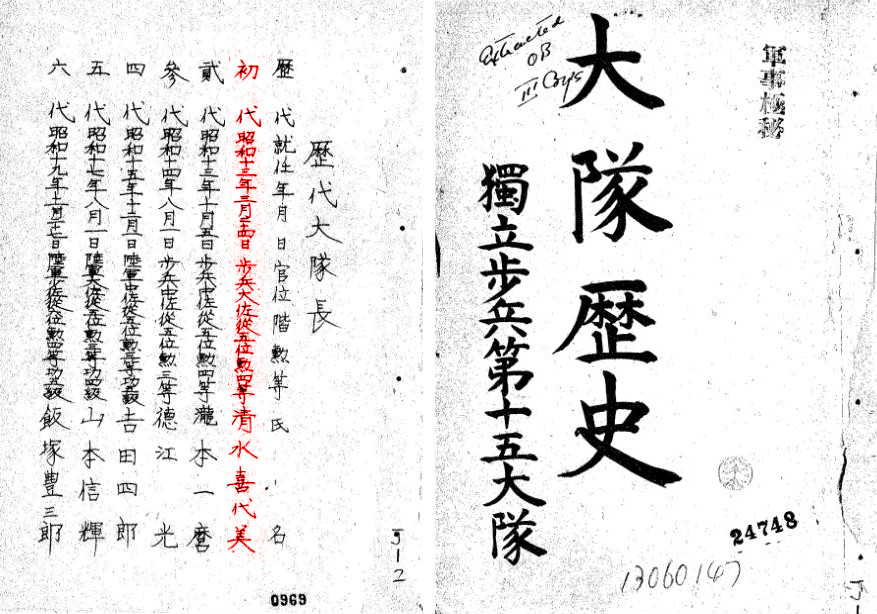 軍事極秘
Extracted
OB
III Corps
大隊歴史
獨立步兵第十五大隊
24748
13060147
歴代大隊長
歴代就任年月日官位階勲等氏名
初代昭和十三年三月 步兵大佐從五位勲四等清水喜代美
貳代昭和十三年十月五日步兵中佐從五位勲四等瀧本一麿
參代昭和十四年八月一日步兵中佐從五位勲三等德江光
四代昭和十五年十二月一日陸軍中佐從五位勲三等吉田四郎
五代昭和十七年八月一日陸軍大佐從五位勲三等山本信輝
六代昭和十九年 陸軍少佐 勲四等 飯塚豊三郎
0969